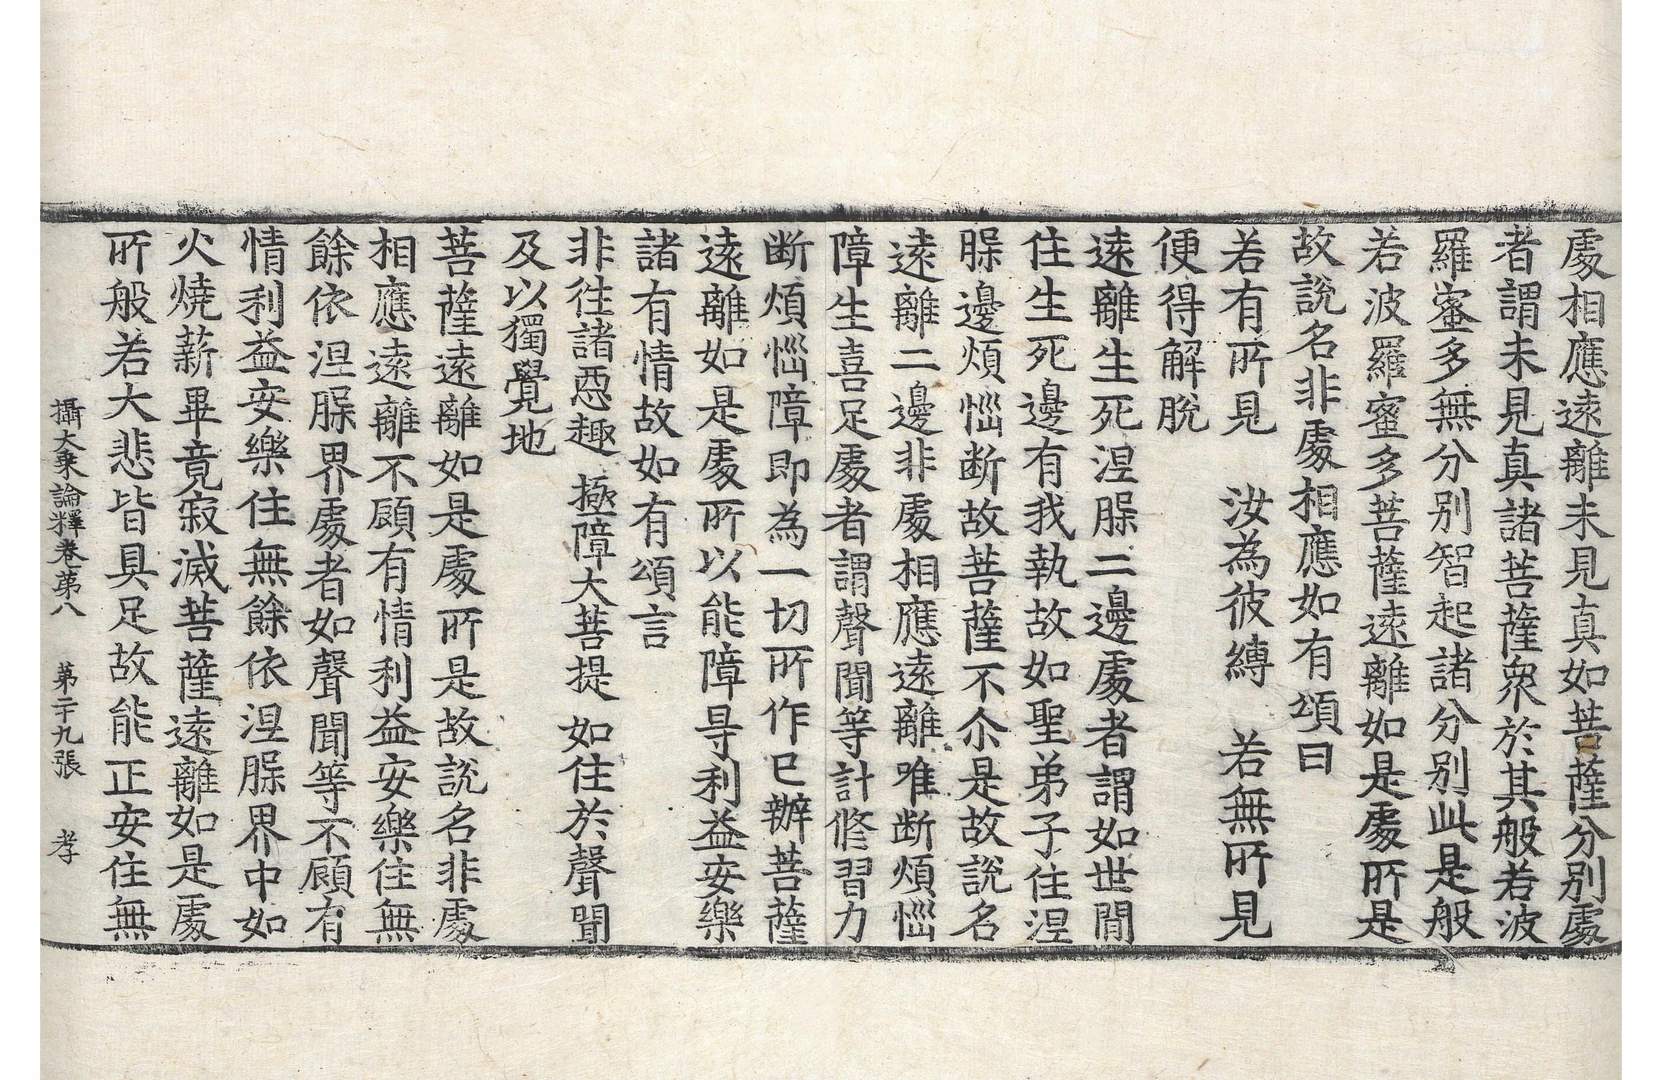 處相應遠離未見真如菩薩分別處
者謂未見真諸菩薩衆於其般若波
羅蜜多無分別智起諸分別此是般
若波羅蜜多菩薩遠離如是處所是
故說名非處相應如有頌曰
若有所見　汝為彼縛　若無所見
便得解脫
遠離生死涅脲二邊處者謂如世間
住生死邊有我執故如聖弟子住涅
脲邊煩惱断故菩薩不尒是故說名
遠離二邊非處相應遠離唯断煩惱
障生喜足處者謂聲聞等計修習力
断煩惱障即為一切所作已辦菩薩
遠離如是處所以能障㝵利益安樂
諸有情故如有頌言
非往諸惡趣　極障大菩提　如住於聲聞
及以獨覺地
菩薩遠離如是處所是故說名非處
相應遠離不顧有情利益安樂住無
餘依涅脲界處者如聲聞等不顧有
情利益安樂住無餘依涅脲界中如
火燒薪畢竟寂滅菩薩遠離如是處
所般若大悲皆具足故能正安住無
攝大乘論釋卷第八　第二十九張　孝